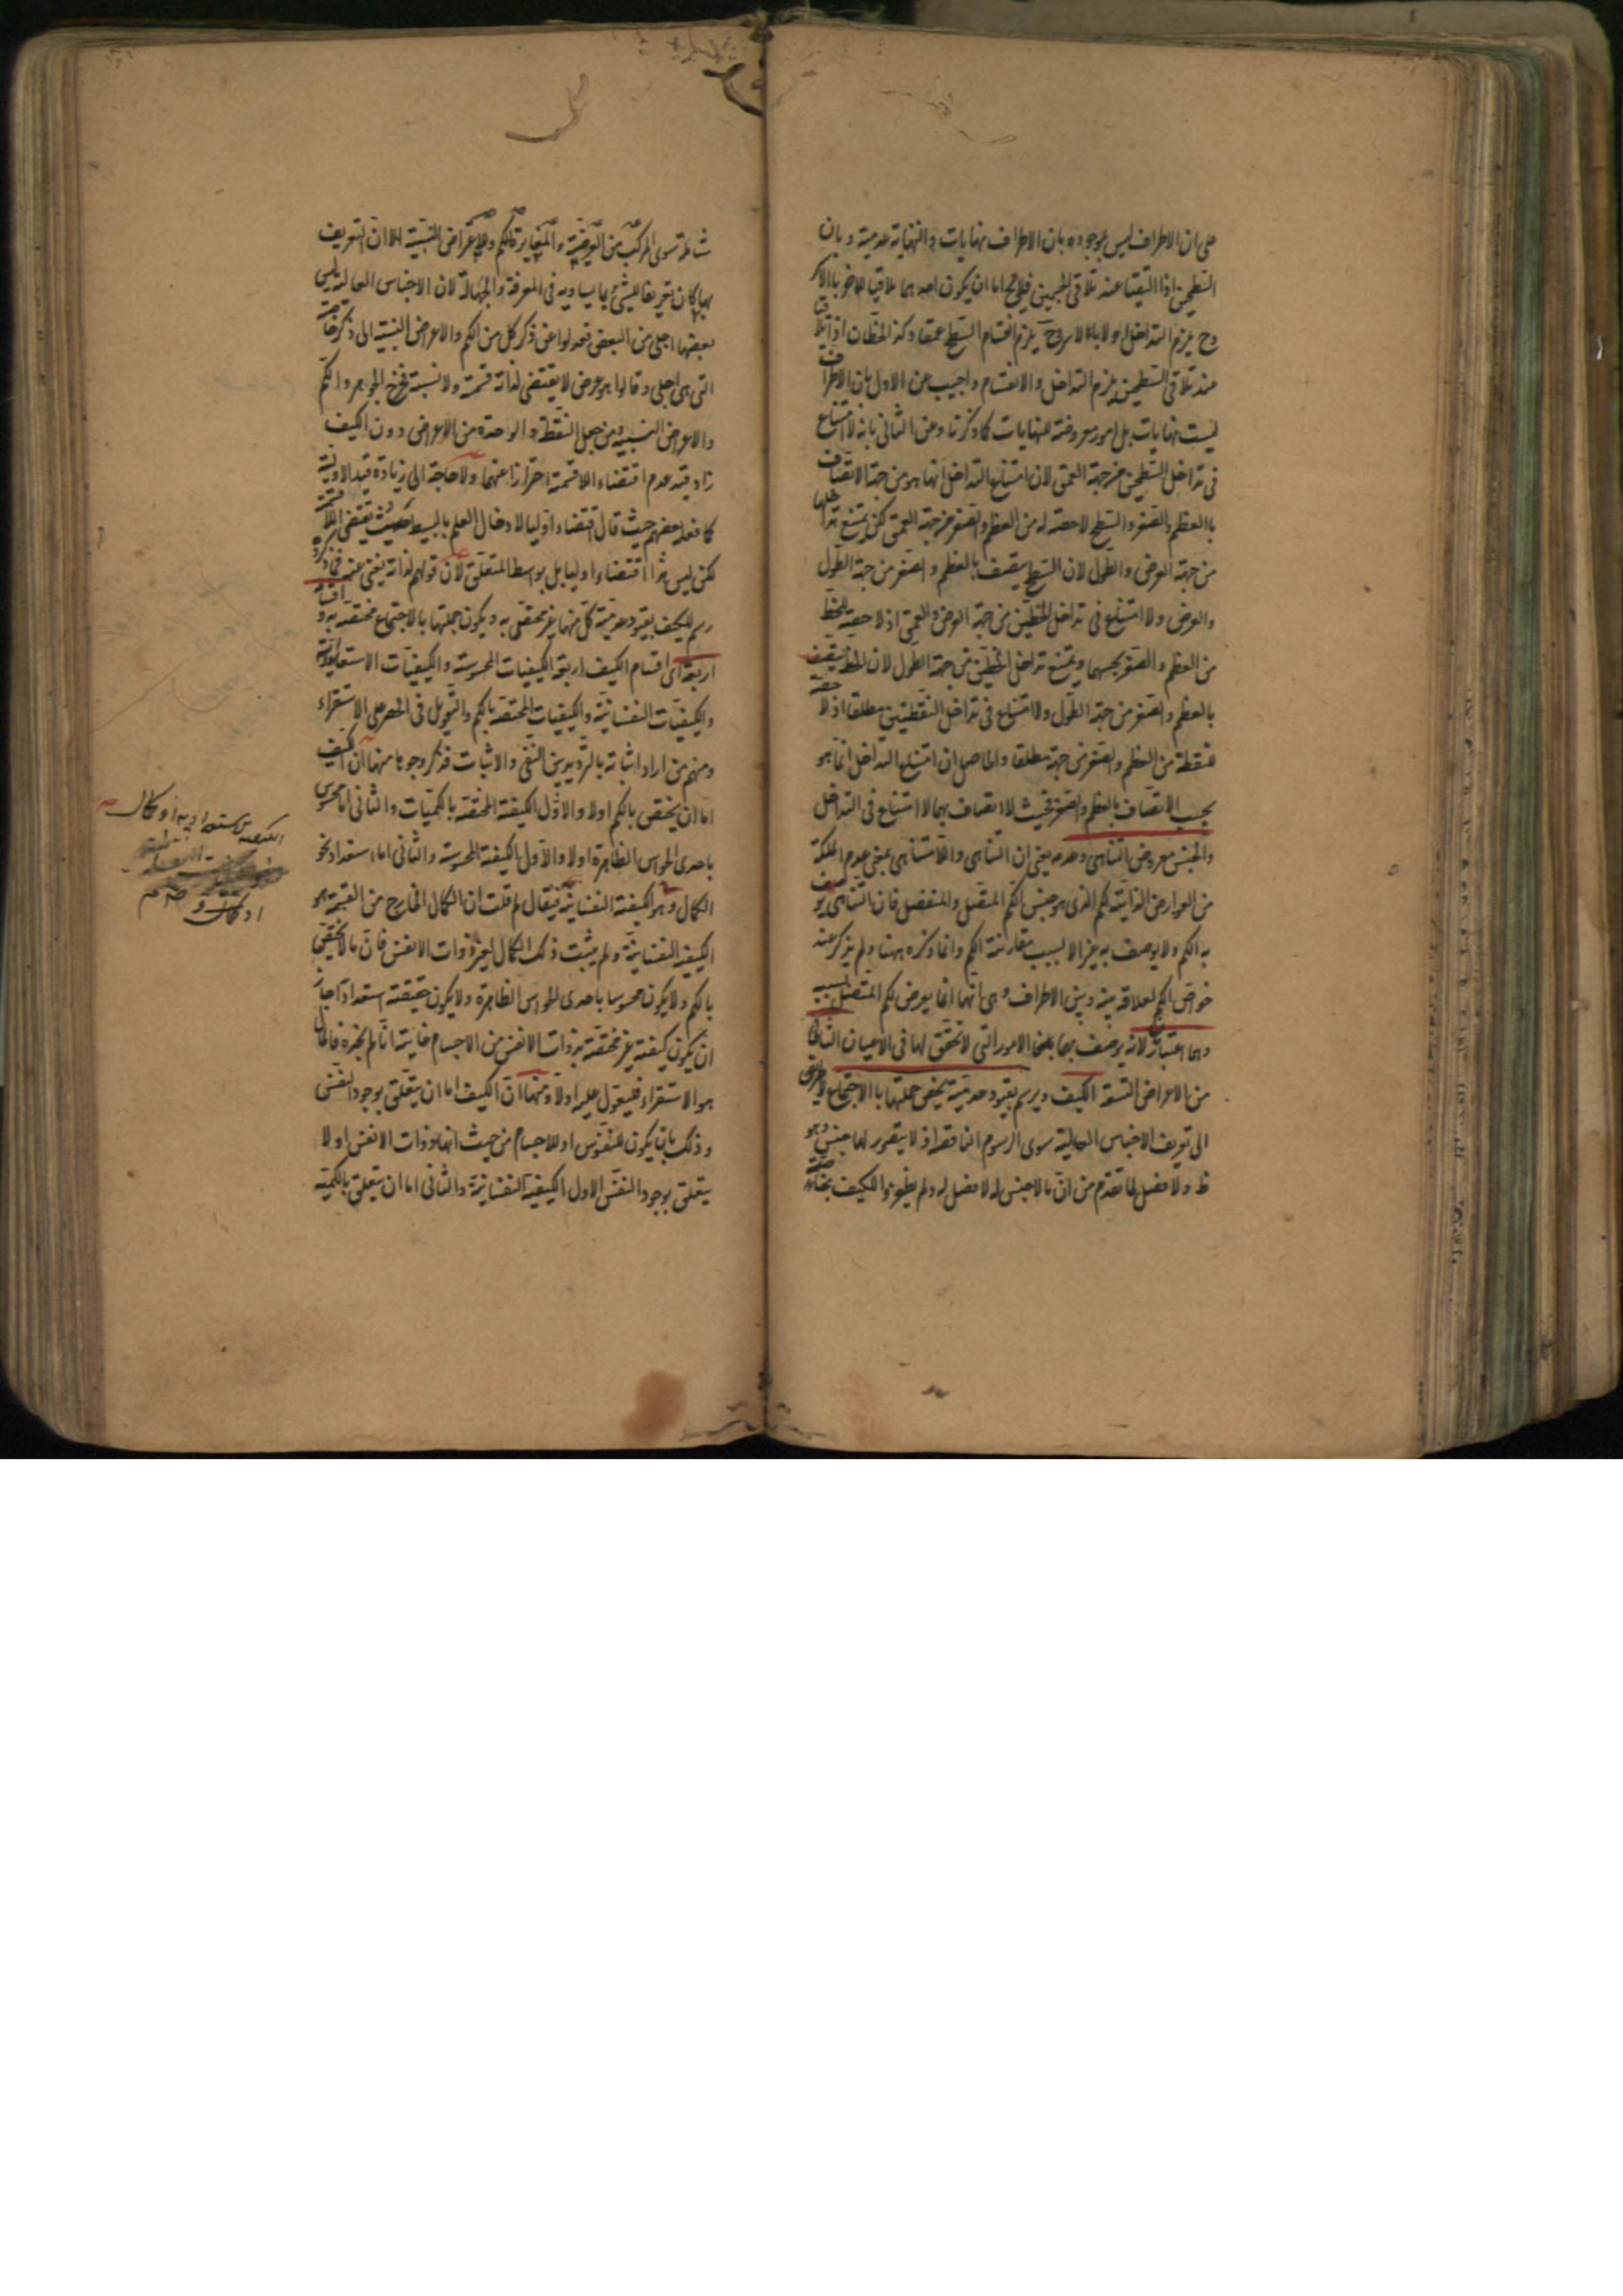 على ان الاطراف ليس بموجوده بان الاطراف نهايات والنهاية عدمية وبان
السطحين اذا التقيا عند تلاقي الجسمين فلا يخ اما ان يكون احدهما ملاقيا للاخر بالاسر
وح يلزم التداخل او لا بالاسر وح يلزم انقسام السطح عمقا وكذا الخطان اذا تلاقيا
عند تلاقي السطحين يلزم التداخل والانقسام واجيب عن الاول بان الاطراف
ليست نهايات بل امور معروضة للنهايات كما ذكرنا وعن الثاني بانه لا امتناع
في تداخل السطحين من جهة العمق لان امتناع التداخل انما هو من جهة الاتصاف
بالعظم والصغر والسطح لا حصة له من العظم والصغر من جهة العمق لكن يمتنع تداخلها
من جهة العرض والطول لان السطح يتصف بالعظم والصغر من جهة الطول
والعرض ولا امتناع في تداخل الخطين من جهة العرض والعمق اذ لا حصة للخط
من العظم والصغر بحسبهما ويمتنع تداخل الخطين من جهة الطول لان الخط يتصف
بالعظم والصغر من جهة الطول ولا امتناع في تداخل النقطتين مطلقا اذ لا حصة
للنقطة من العظم والصغر من جهة مطلقا والحاصل ان امتناع التداخل انما هو
بحسب الاتصاف بالعظم والصغر فحيث لا اتصاف بهما لا امتناع في التداخل
والجنس معروض التناهي وعدمه يعني ان التناهي واللاتناهي بمعنى عدم الملكة
من العوارض الذاتية للكم الذي هو جنس لكم المتصل والمنفصل فان التناهي يوصف
به الكم ولا يوصف به غيره الا بسبب مقارنة الكم وانما ذكره ههنا ولم يذكر عند
خواص الكم لعلاقة بينه وبين الاطراف وهي انها انما يعرض لكم المتصل بسببه
وهما اعتباريان لانه يوصف بهما بعض الامور التي لا تحقق لها في الاعيان الثاني
من الاعراض التسعة الكيف ويرسم بقيود عدمية يخص جملتها بالاجتماع لا طريق
الى تعريف الاجناس العالية سوى الرسوم الناقصة اذ لا يتصور لها جنس وهو
ظ ولا فصل لما تقدم من ان ما لا جنس له لا فصل له ولم يظفروا للكيف بخاصة
شاملة سوى المركب من العرضية والمغايرة للكم وللاعراض النسبية الا ان التعريف
بها كان تعريفا للشيء بما يساويه في المعرفة والجهالة لان الاجناس العالية ليس
بعضها اجلى من البعض فعدلوا عن ذكر كل من الكم والاعراض النسبية الى ذكر خاصته
التي هي اجلى وقالوا هو عرض لا يقتضي لذاته قسمة ولا نسبة فخرج الجوهر والكم
والاعراض النسبية ومن جعل النقطة والوحدة من الاعراض دون الكيف
زاد قيد عدم اقتضاء اللاقسمة احترازا عنهما ولا حاجة الى زيادة قيد الاولية
كما فعله بعضهم حيث قال اقتضاء اوليا لادخال العلم بالبسيط حيث يقتضي اللاقسمة
لكن ليس هذا اقتضاء اوليا بل بواسطة المتعلق لان قولهم لذاته يغني عنه فما ذكروه
رسم للكيف بقيود عدمية كل منها غير مختص به ويكون جملتها بالاجتماع مختصة به واقسامه
اربعة اي اقسام الكيف اربعة الكيفيات المحسوسة والكيفيات الاستعدادية
والكيفيات النفسانية والكيفيات المختصة بالكم والتعويل في الحصر على الاستقراء
ومنهم من اراد اثباته بالترديد بين النفي والاثبات فذكر وجوها منها ان الكيف
اما ان يختص بالكم اولا والاول الكيفية المختصة بالكميات والثاني اما محسوس
باحدى الحواس الظاهرة اولا والاول الكيفية المحسوسة والثاني اما استعداد نحو
الكمال وهو الكيفية النفسانية فيقال لم قلت ان الكمال الخارج من القسمة هو
الكيفية النفسانية ولم يثبت ذلك الكمال لغير ذوات الانفس فان ما لا يختص
بالكم ولا يكون محسوسا باحدى الحواس الظاهرة ولا يكون حقيقته استعدادا جاز
ان يكون كيفية غير مختصة بذوات الانفس من الاجسام غايته انا لم نجده فالمآل
هو الاستقراء فليعول عليه اولا ومنها ان الكيف اما ان يتعلق بوجود النفس
وذلك بان يكون للنفوس او للاجسام من حيث انها ذوات الانفس او لا
يتعلق بوجود النفس الاول الكيفية النفسانية والثاني اما ان يتعلق بالكمية
الكيفية الاستعدادية او كمال
او كمال وهو صح